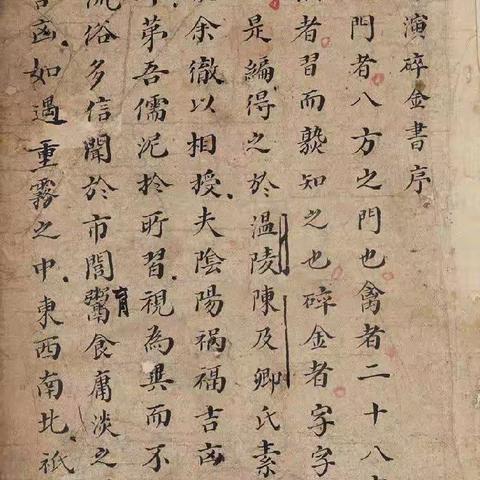 演碎金書序
門者八方之門也禽者二十八
者習而熟知之也碎金者字字
是編得之於温陵陳及卿氏素
余徹以相授夫陰陽禍福吉凶
第吾儒泥於所習視為異而不
流俗多信聞於市閭鬻育食庸淡之
凶如遇重霧之中東西南北祇